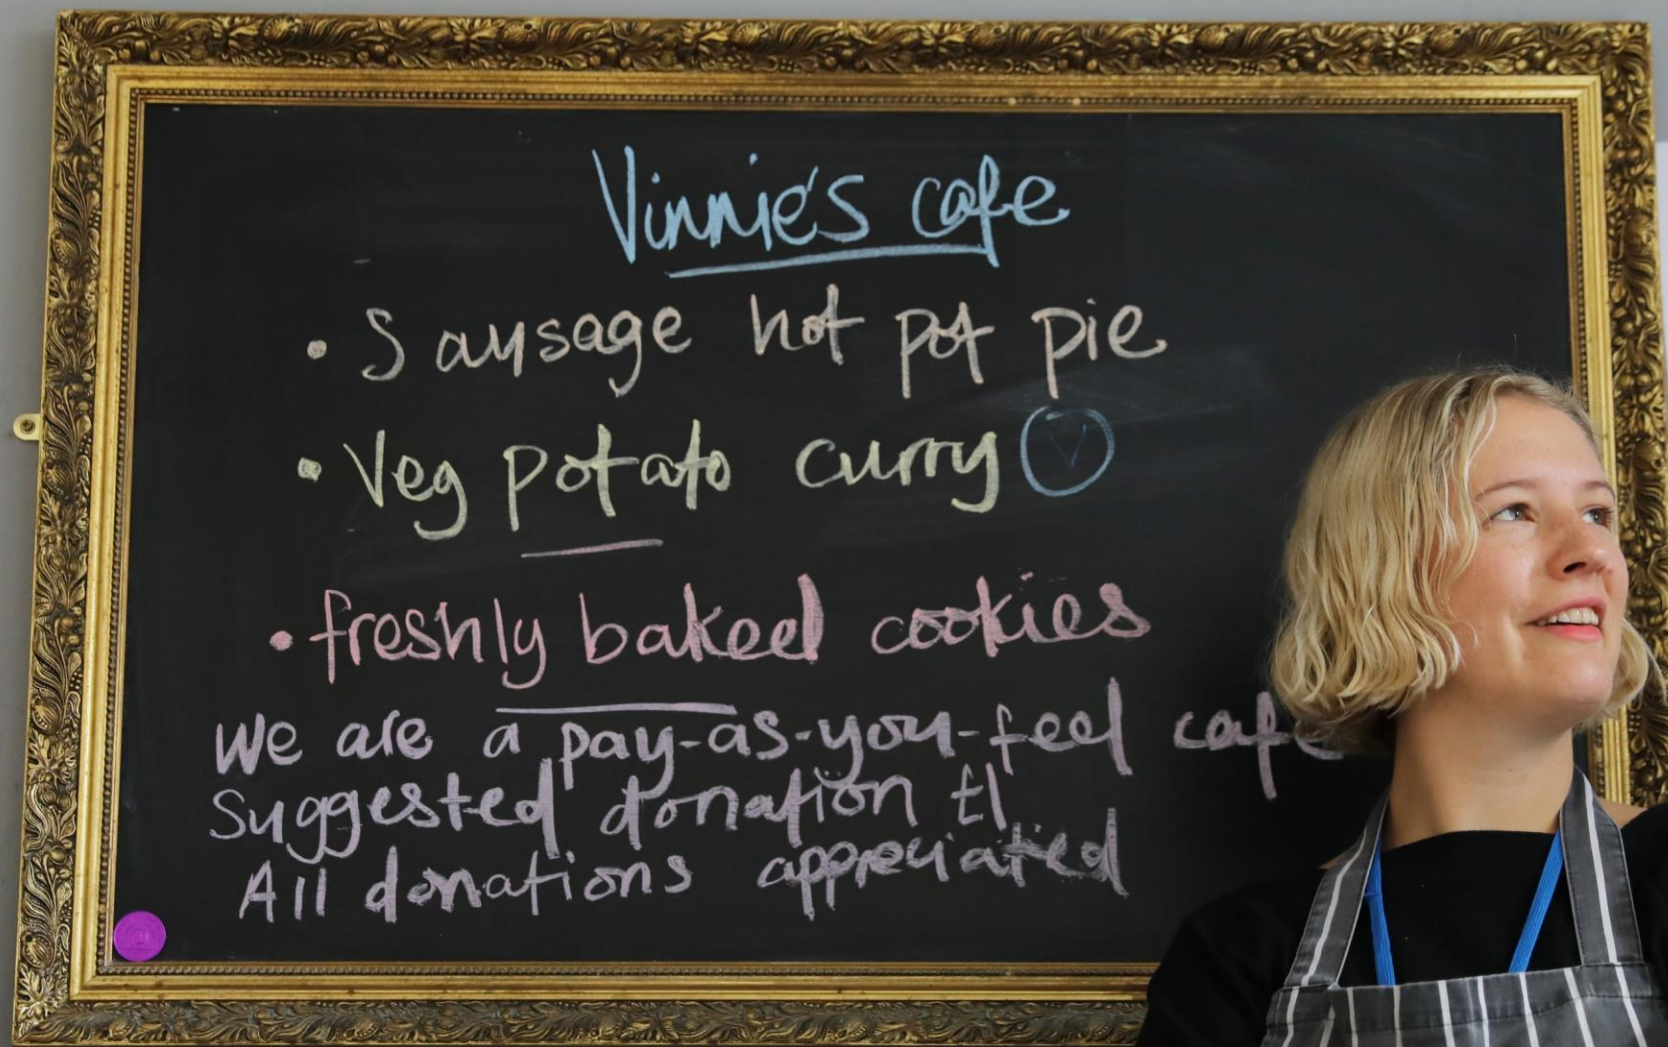 Vinnie's cafe
• Sausage hot pot pie
• Veg potato curry Ⓥ
• freshly baked cookies
We are a pay-as-you-feel cafe
Suggested donation £1
All donations appreciated